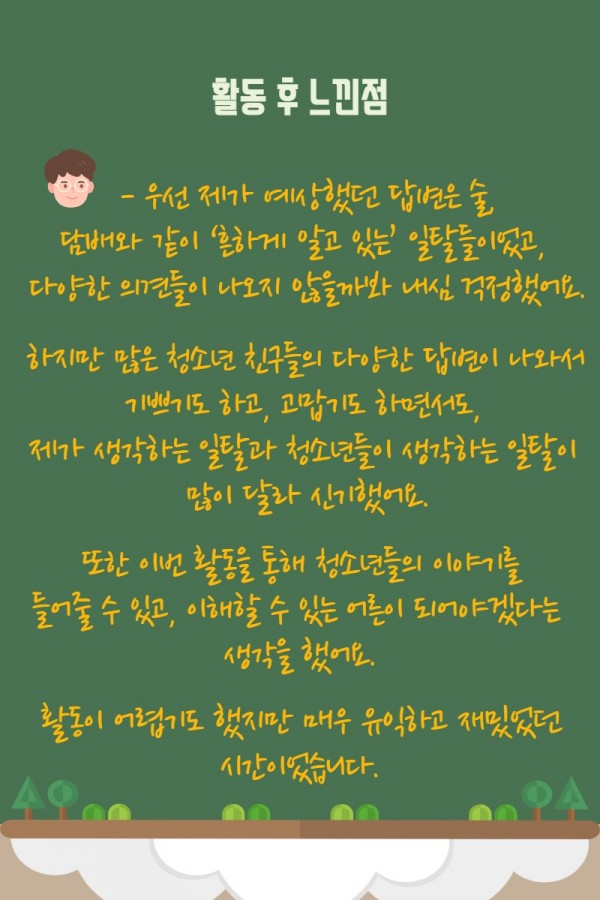 활동 후 느낀점
- 우선 제가 예상했던 답변은 술,
담배와 같이 '흔하게 알고 있는' 일탈들이었고,
다양한 의견들이 나오지 않을까봐 내심 걱정했어요.
하지만 많은 청소년 친구들의 다양한 답변이 나와서
기쁘기도 하고, 고맙기도 하면서도,
제가 생각하는 일탈과 청소년들이 생각하는 일탈이
많이 달라 신기했어요.
또한 이번 활동을 통해 청소년들의 이야기를
들어줄 수 있고, 이해할 수 있는 어른이 되어야겠다는
생각을 했어요.
활동이 어렵기도 했지만 매우 유익하고 재밌었던
시간이었습니다.